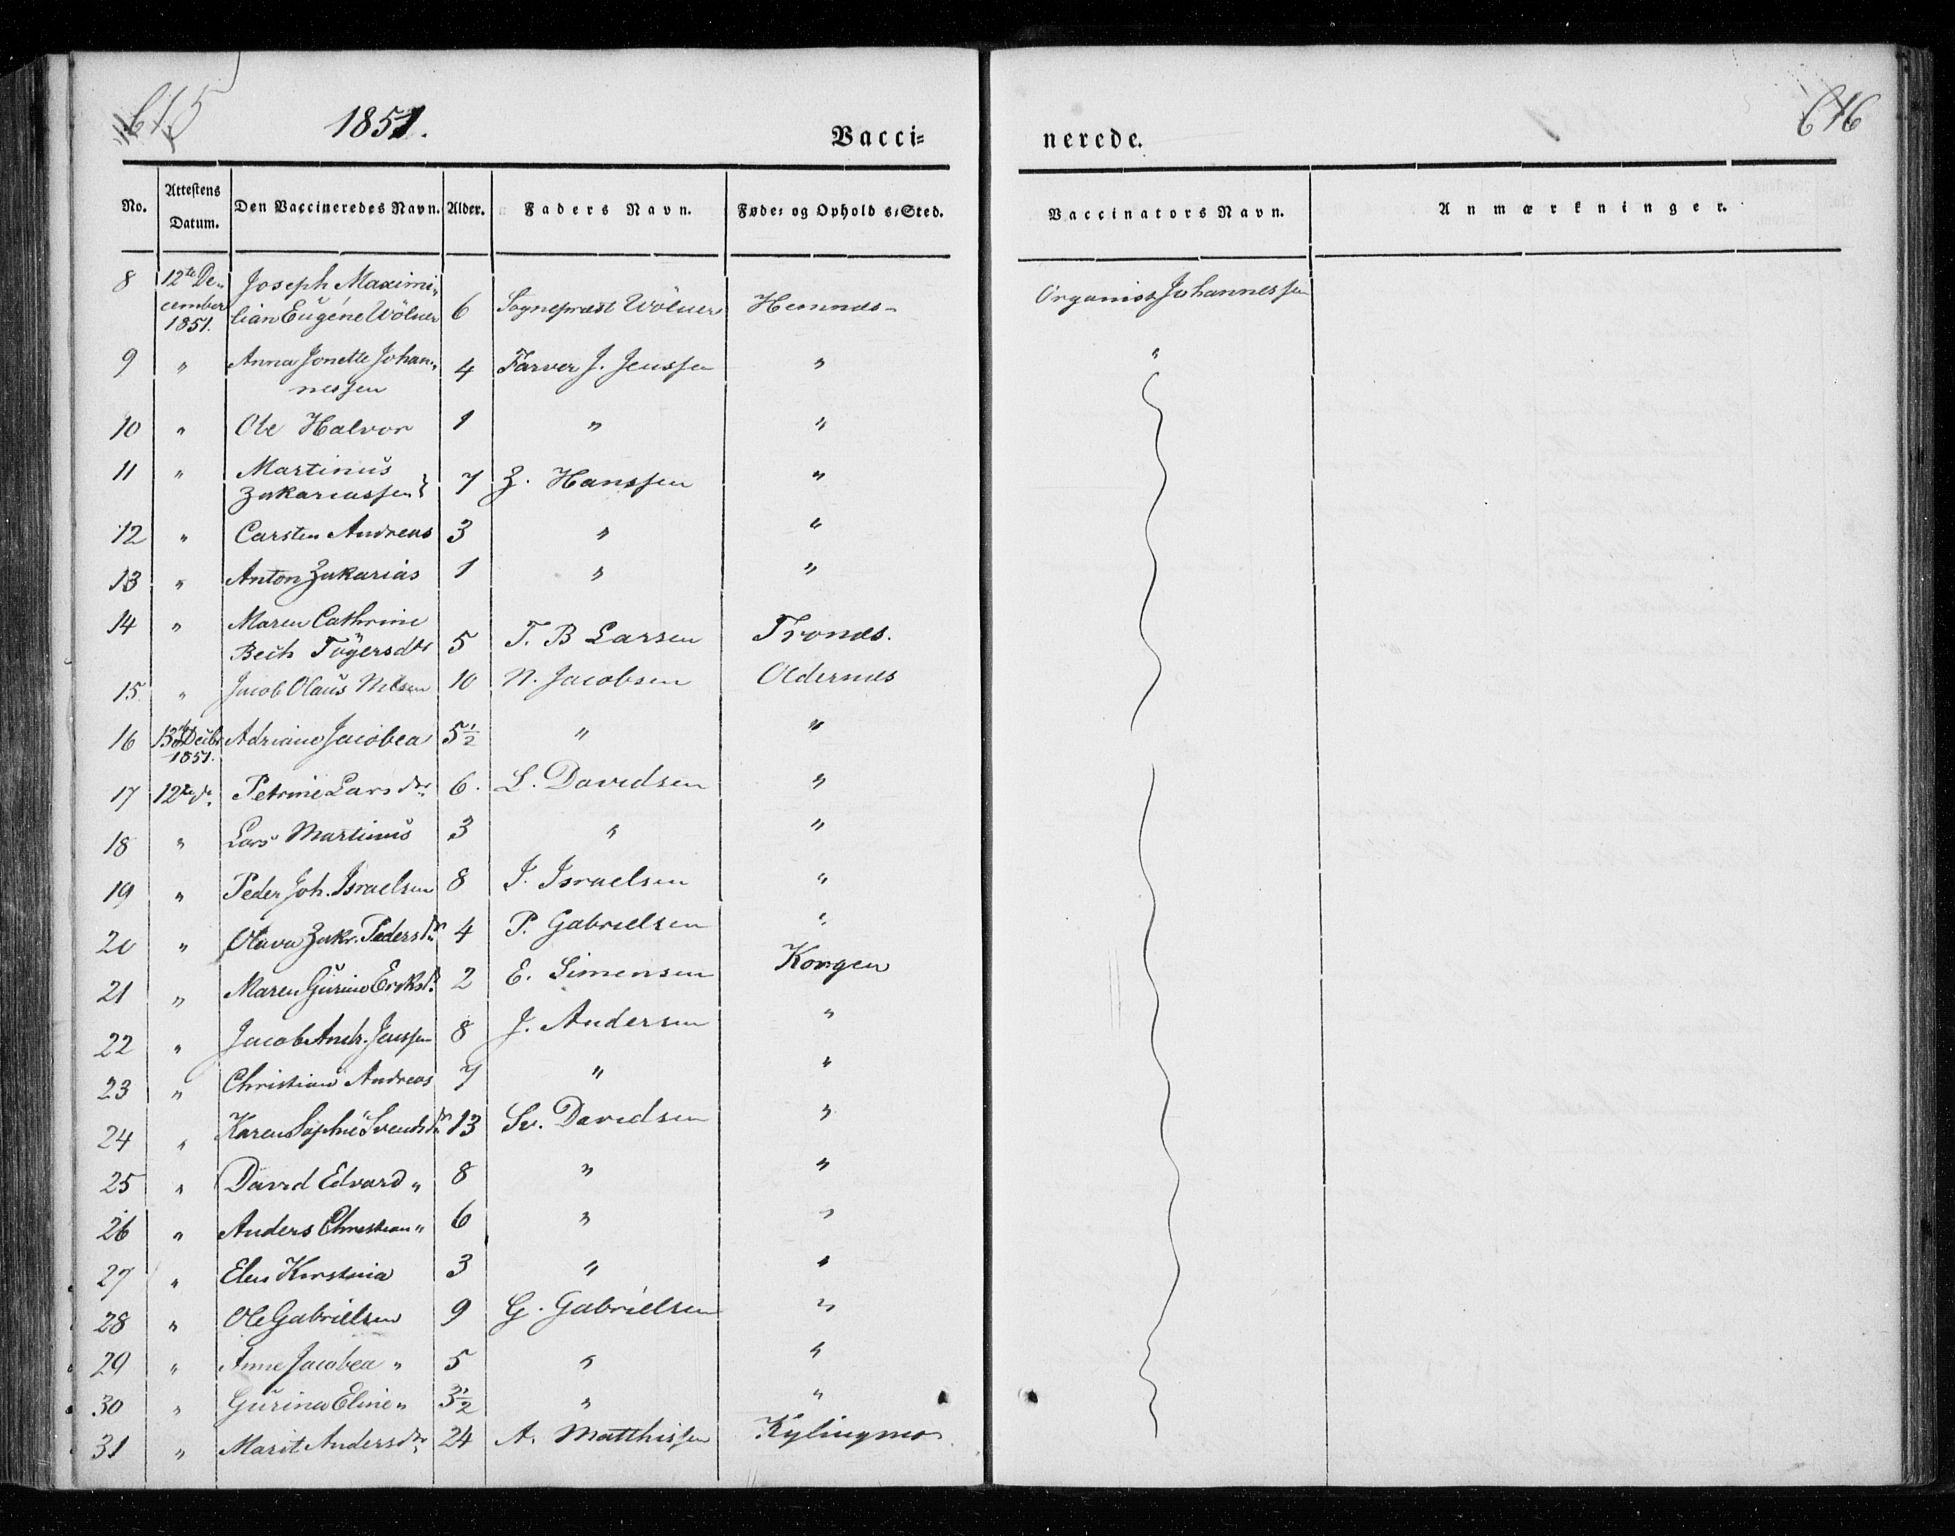 615
1851.
Vacci=
nerede.
616
No.
Attestens Datum.
Den Vaccineredes Navn.
Alder.
Faders Navn.
Føde- og Ophold s-Sted.
Vaccinators Navn.
Anmærkninger.
8 12te De- Joseph Maximi-
cember lian Eugéne Wölner 6 Sognepræst Wölner Hemnes- Organist Johannessen
1851.
9 " Anna Jonette Johan- 4 Farver J. Jenssen " "
nessen
10 " Ole Halvor 1 " "
11 " Martinus
Zakariassen 7 Z. Hanssen "
12 " Carsten Andreas 3 " "
13 " Anton Zakarias 1 " "
14 " Maren Cathrine
Bech Töger sdtr 5 T. B Larsen Trones.
15 " Jacob Olaus Nilsen 10 N. Jacobsen Oldernes
16 13de Decbr Adriane Jacobea 5½ " "
1851.
17 12te d. Petrine Larsdtr. 6. L. Davidsen "
18 " Lars Martinus 3 " "
19 " Peder Joh. Israelsen 8 I. Israelsen "
20 " Olava Zakr. Pedersdr. 4 P. Gabrielsen "
21 " Maren Gurine Eriksdr. 2 E. Simensen Korgen
22 " Jacob Andr. Jenssen 8 J. Andersen "
23 " Christian Andreas 7 " "
24 " Karen Sophie Svendsdr. 13 Sv. Davidsen "
25 " David Edvard " 8 " "
26 " Anders Christian " 6 " "
27 " Elen Kirstina 3 " "
28 " Ole Gabrielsen 9 G. Gabrielsen "
29 " Anne Jacobea " 5 " "
30 " Gurina Eline " 3½ " "
31 " Marit Andersdtr. 24 A. Matthissen Kylingmo